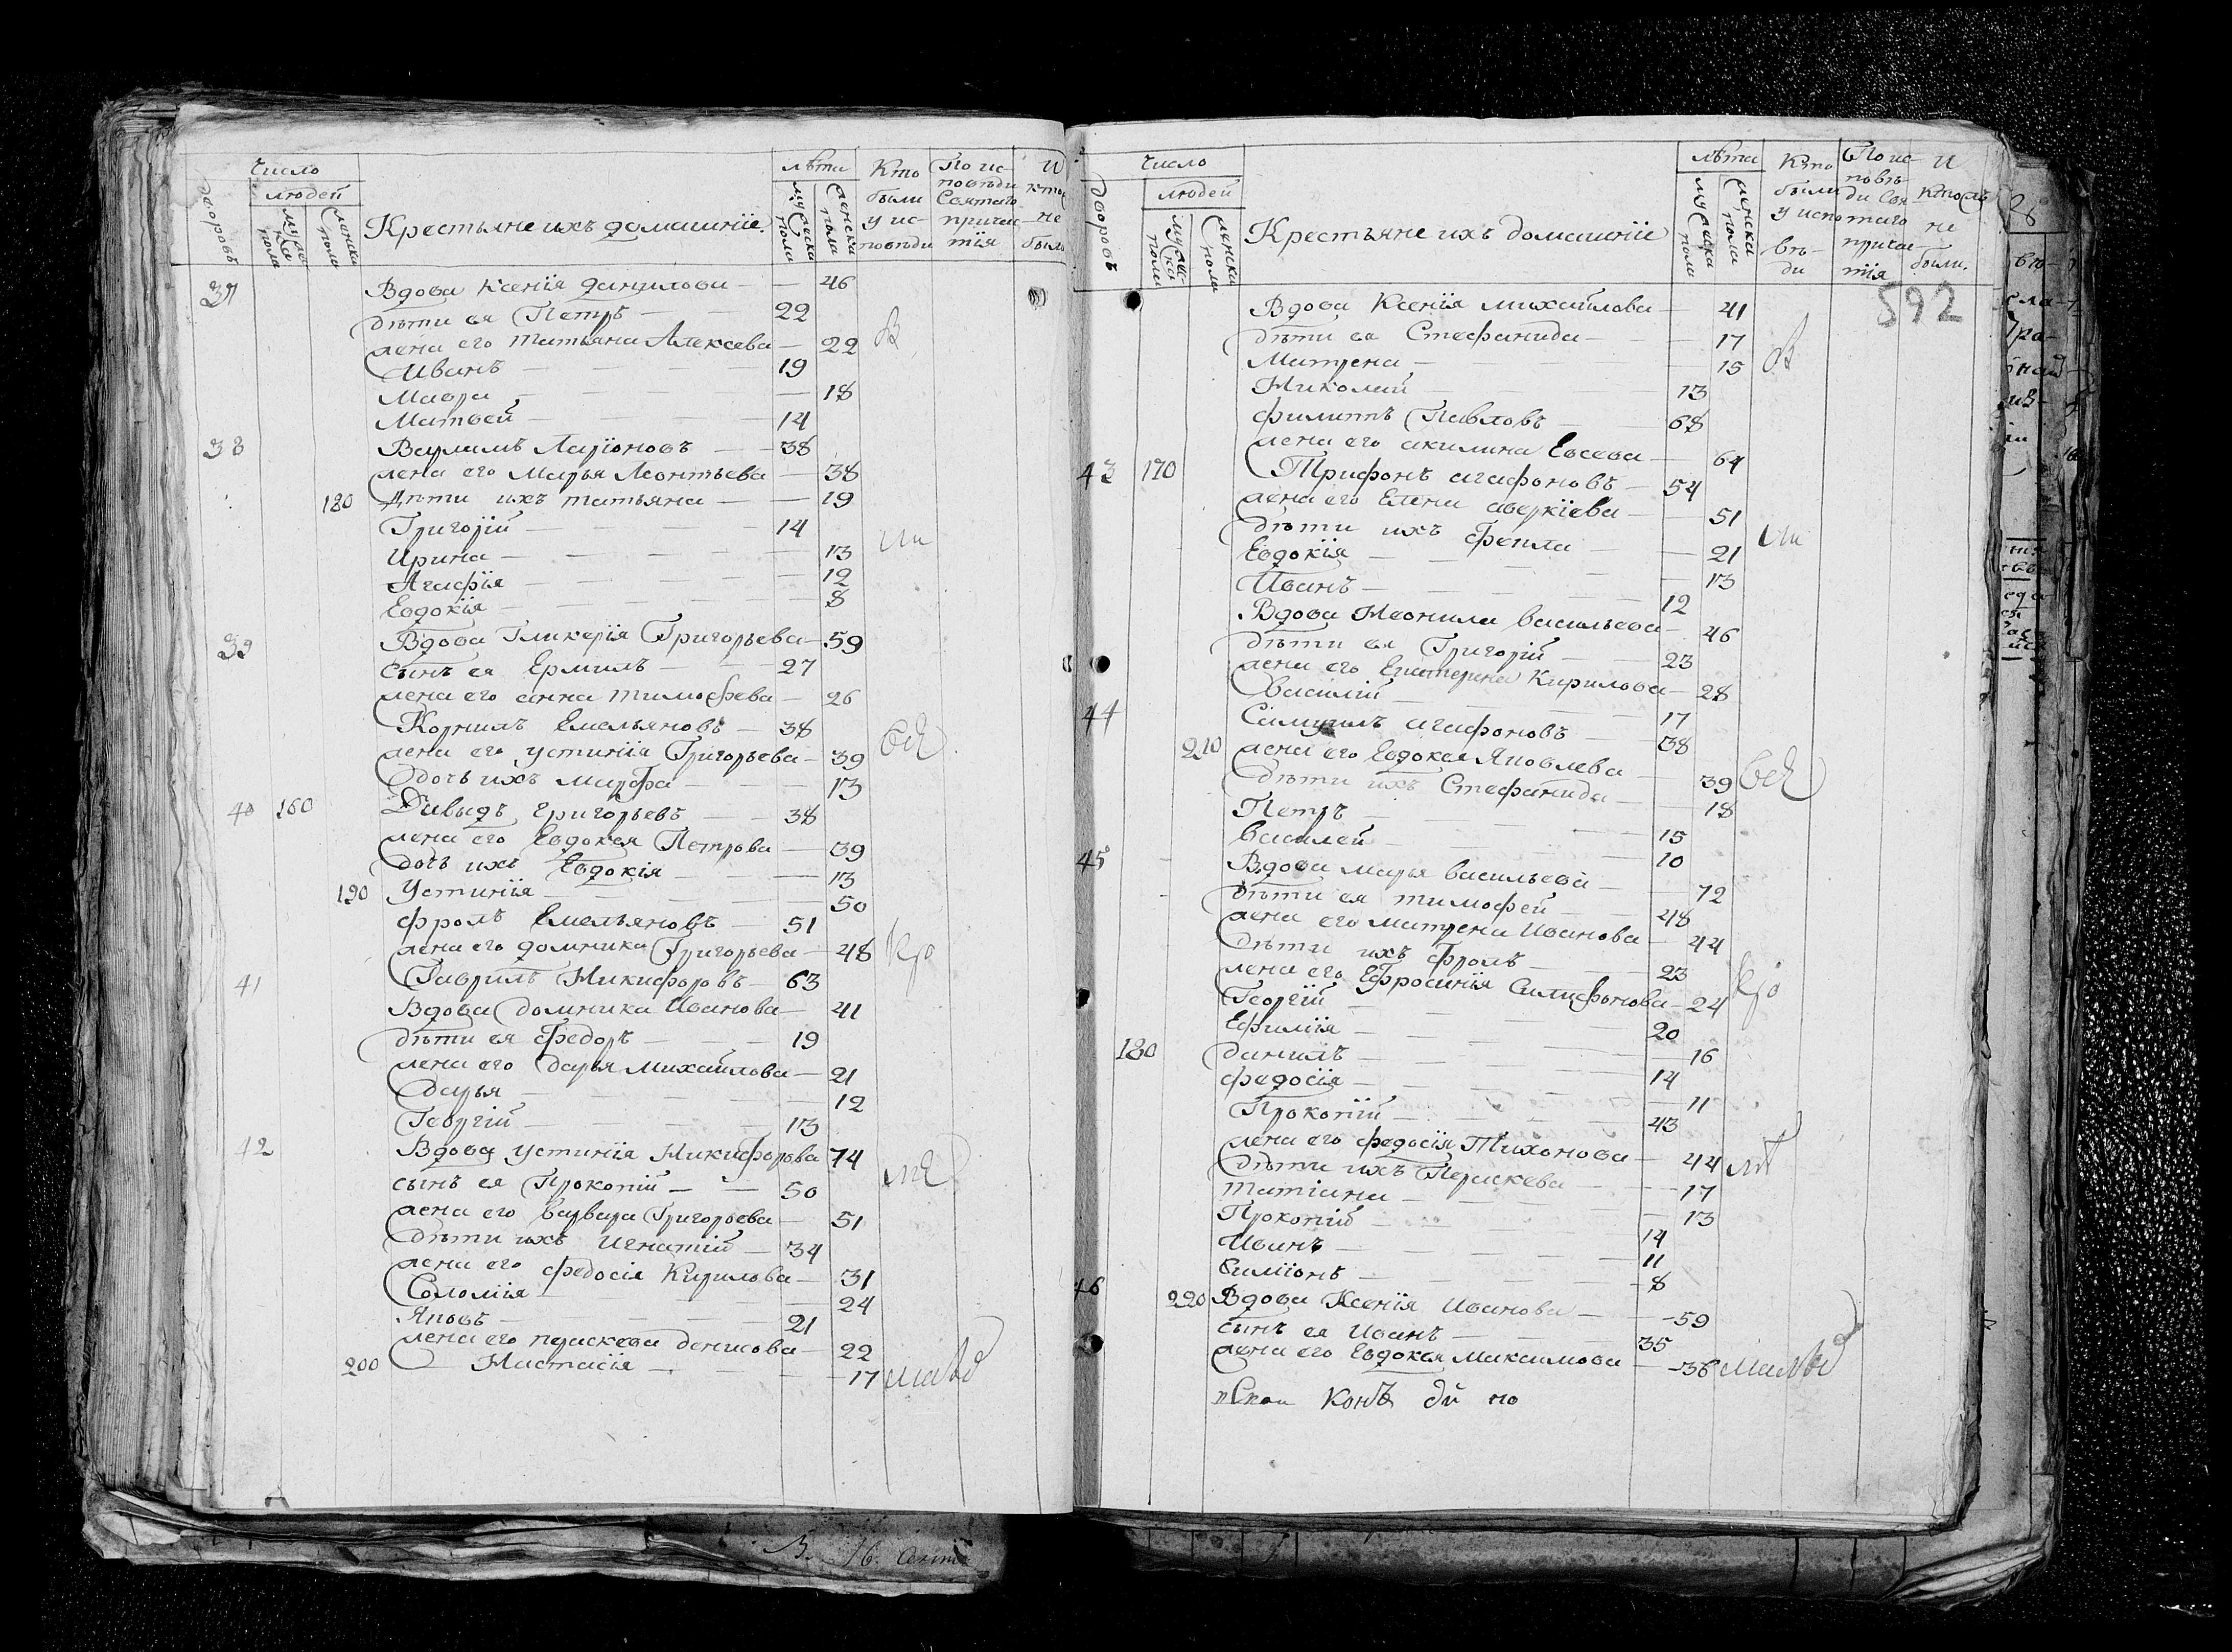 Число
дворовъ
людей
мужеска пола
женска пола
Крестьяне ихъ домашнїе.
лѣта
мужеска пола
женска пола
Кто были у исповѣди
По исповѣди Святаго причастїя
И кто не были
37 Вдова Ксенїя данилова — 46
дѣти ея Петръ — 22
жена его татьяна Алексева — 22
Иванъ — 19
Мавра — 18
Матвей — 14
38 Варламъ Ларїоновъ — 38
жена его Марья Леонтьева — 38
180 Дѣти ихъ татьяна — 19
Григорїй — 14
Ирина — 13
Агафїя — 12
Евдокїя — 8
39 Вдова Гликерїя Григорьева — 59
сынъ ея Ермилъ — 27
жена его анна тимофева — 26
Корнилъ Емельяновъ — 38
жена его устинїя Григорьева — 39
дочь ихъ марфа — 13
40 160 Давыдъ григорьевъ — 38
жена его Евдокея Петрова — 39
дочь ихъ Евдокїя — 13
190 Устинїя — 50
фролъ Емельяновъ — 51
жена его домника Григорьева — 48
41 Гаврилъ Никифоровъ — 63
Вдова домника Иванова — 41
дѣти ея Федоръ — 19
жена его дарья михайлова — 21
дарья — 12
Георгїй — 13
42 Вдова устинїя Никифорова 74
сынъ ея Прокопїй — 50
жена его варвара Григорьева — 51
дѣти ихъ Игнатїй — 34
жена его федосїя Кирилова — 31
Соломїя — 24
Яковъ — 21
жена его параскева денисова — 22
200 Настасїя — 17
В
си
всѣ
Число
дворовъ
людей
мужеска пола
женска пола
Крестьяне ихъ домашнїе
лѣта
мужеска пола
женска пола
Кто были у исповѣди
По исповѣди Святаго причастїя
И кто не были.
592
Вдова Ксенїя михайлова — 41
дѣти ея Стефанида — 17
Матрена — 15
Николай — 13
филиппъ Павловъ — 68
жена его акилина Евсева — 64
43 170 Трифонъ агафоновъ — 54
жена его Елена аверкїева — 51
дѣти ихъ фекла — 21
Евдокїя — 13
Иванъ — 12
Вдова Неонила васильева — 46
дѣти ея Григорїй — 23
жена его Екатерина Кирилова — 28
Василїй — 17
44 Самуилъ агафоновъ — 38
210 жена его Евдокея Яковлева — 39
дѣти ихъ Стефанида — 18
Петръ — 15
василей — 10
45 Вдова марья васильева — 72
дѣти ея тимофей — 48
жена его матрена Иванова — 44
дѣти ихъ фролъ — 23
жена его Ефросинїя — 24
Георгїй — 20
Ефимїя — 16
180 данилъ — 14
федосїя — 11
Прокопїй — 43
жена его федосїя Тихонова — 44
дѣти ихъ Параскева — 17
татїана — 13
Прокопїй — 14
Иванъ — 11
Симїонъ — 8
46 220 Вдова Ксенїя Иванова — 59
сынъ ея Иванъ — 35
жена его Евдокея Максимова — 36